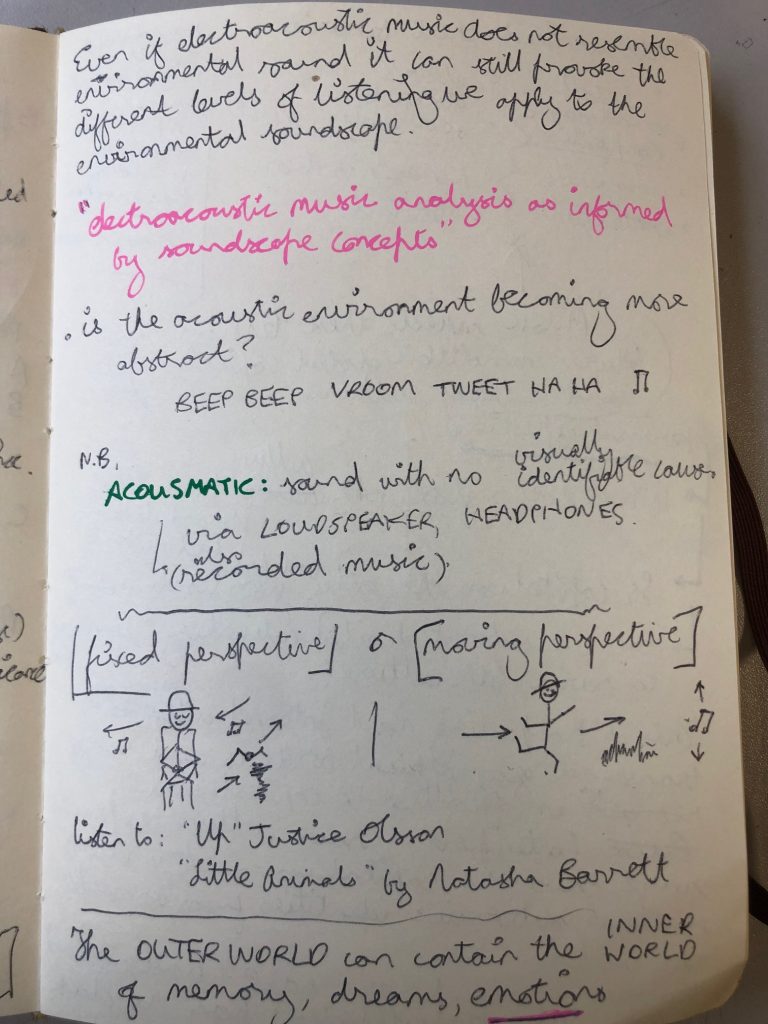 Even if electroacoustic music does not resemble
environmental sound it can still provoke the
different levels of listening we apply to the
environmental soundscape.
"electroacoustic music analysis as informed
by soundscape concepts"
. is the acoustic environment becoming more
abstract?
BEEP BEEP VROOM TWEET HA HA ♫
N.B.
visually
ACOUSMATIC: sound with no identifiable cause.
via LOUDSPEAKER, HEADPHONES.
also
(recorded music).
[fixed perspective] or [moving perspective]
listen to: "Up" Justice Olsson
"Little Animals" by Natasha Barrett
The OUTER WORLD can contain the INNER WORLD
of memory, dreams, emotions